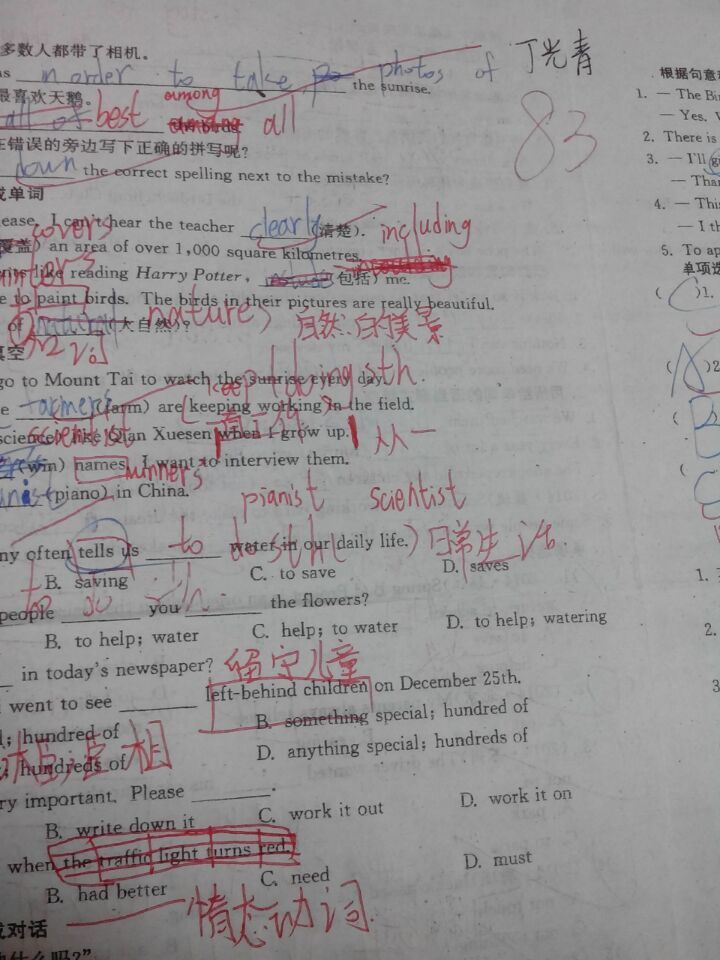 多数人都带了相机。
in order to take photos of the sunrise.
丁光青
83
最喜欢天鹅。
among
all of best all
在错误的旁边写下正确的拼写呢?
down the correct spelling next to the mistake?
成单词
lease. I can't hear the teacher clearly (清楚).
covers including
覆盖) an area of over 1,000 square kilometres.
like reading Harry Potter, 包括) me.
e to paint birds. The birds in their pictures are really beautiful.
of natural 大自然)?
nature 自然 的美景
动词
填空
go to Mount Tai to watch the sunrise every day.
keep doing sth.
farmers (farm) are keeping working in the field.
science like Qian Xuesen when I grow up.
scientist 从一
(win) names. I want to interview them.
winners
(piano) in China.
pianist scientist
ny often tells us water in our daily life.
to do sth 日常生活
B. saving C. to save D. saves
people you the flowers?
B. to help; water C. help; to water D. to help; watering
in today's newspaper?
留守儿童
went to see left-behind children on December 25th.
; hundred of B. something special; hundred of
; hundreds of D. anything special; hundreds of
ry important. Please .
B. write down it C. work it out D. work it on
when the traffic light turns red.
B. had better C. need D. must
情态动词
成对话
什么吗?”
根据句意和
1. — The Bir
— Yes.
2. There is
3. — I'll g
— Than
4. — This
— I th
5. To ap
单项选
( )1.
( )2
(
(
1.
2.
3